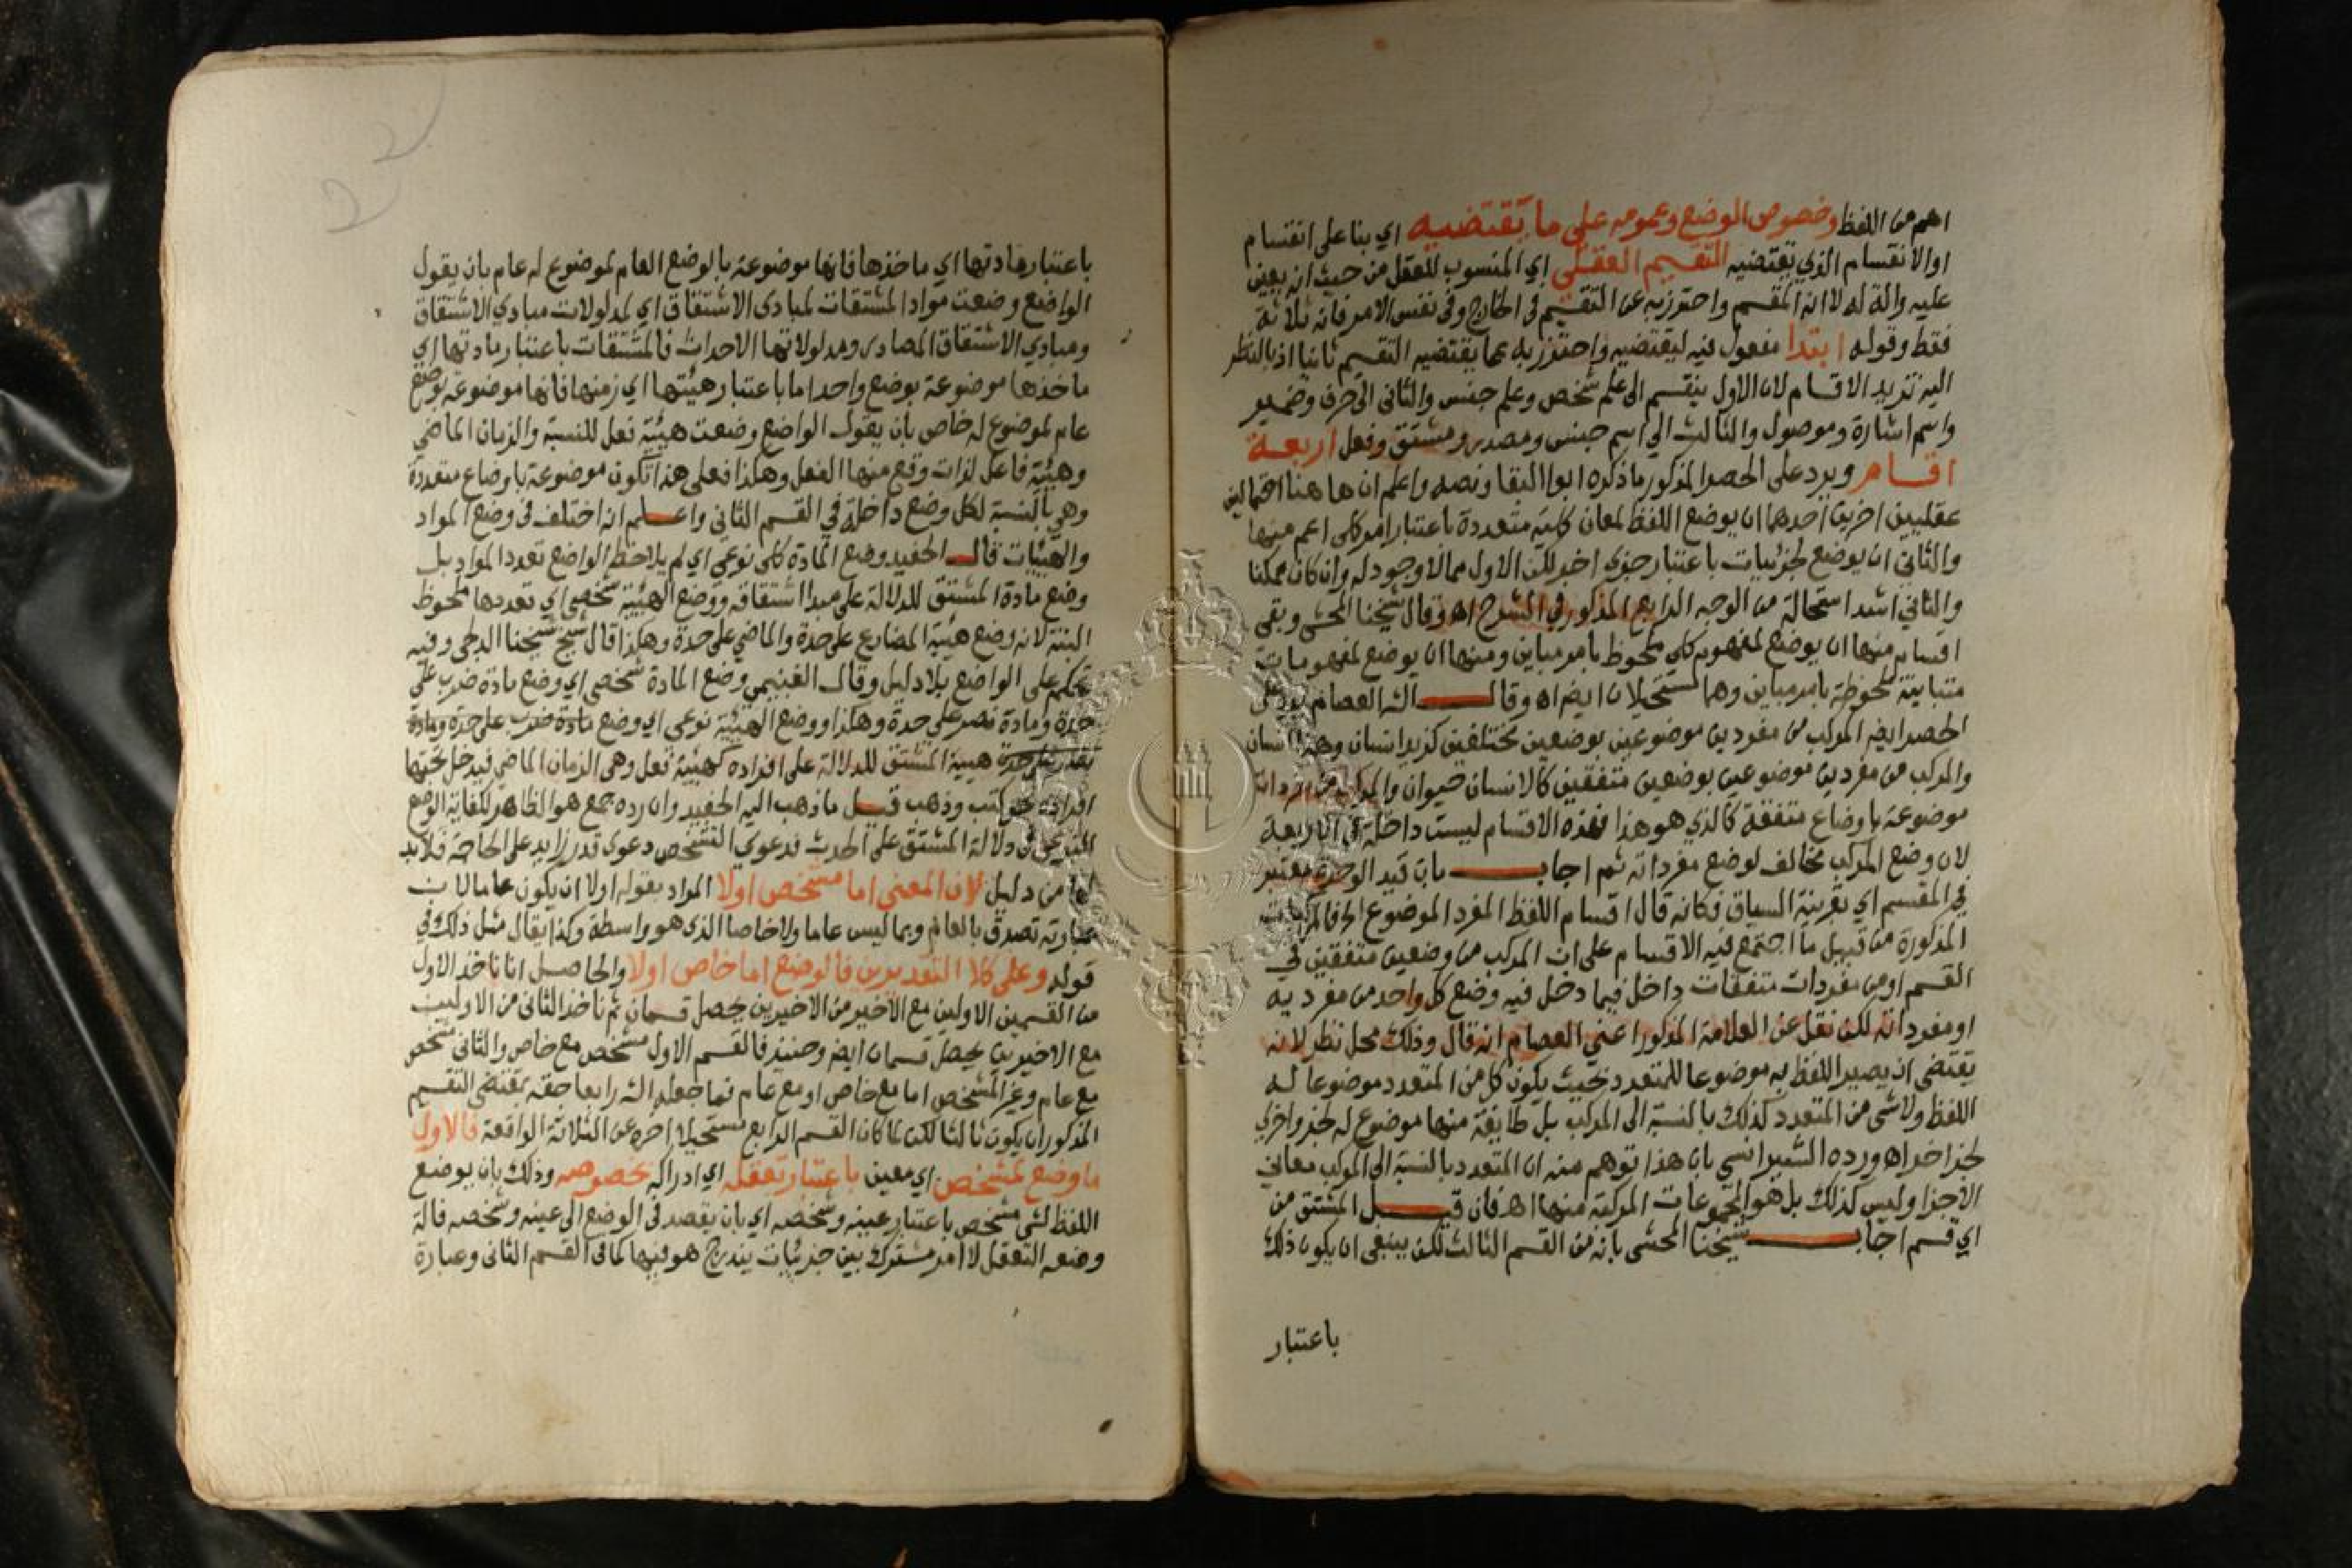 اهم من اللفظ وخصوص الوضع وعمومه على ما يقتضيه اي بنا على انقسام
اوالانقسام الذي يقتضيه التقسيم العقلي اي المنسوب للعقل من حيث انه يعين
عليه والة له لا انه المقسم واحترز به عن التقسيم في الخارج وفي نفس الامر فانه ثلاثة
فقط وقوله ابتدا مفعول فيه ليقتضيه واحترز به عما يقتضيه التقسيم ثانيا اذ بالنظر
اليه تزيد الاقسام لان الاول ينقسم الى علم شخص وعلم جنس والثاني الى حرف وضمير
واسم اشارة وموصول والثالث الى اسم جنس ومصدر ومشتق وفعل اربعة
اقسام ويرد على الحصر المذكور ما ذكره ابوا البقا ونصه واعلم ان ها هنا احتمالين
عقليين اخرين احدهما ان يوضع اللفظ لمعان كلية متعددة باعتبار امر كلى اعم منها
والثاني ان يوضع لجزئيات باعتبار جزي اخر لكن الاول مما لا وجود له وان كان ممكنا
والثاني اشد استحالة من الوجه الرابع المذكور في الشرح اه وقال شيخنا المحشي وبقى
اقسام منها ان يوضع لمفهوم كلي ملحوظ بامر مباين ومنها ان يوضع لمفهومات
متباينة ملحوظة بامر مباين وهما مستحيلان ايضا اه وقال الش العصام
الحصر ايضا المركب من مفردين موضوعين بوضعين مختلفين كزيد انسان وهذا انسان
والمركب من مفردين موضوعين بوضعين متفقين كالانسان حيوان والمركب من مفردات
موضوعة باوضاع متفقة كالذي هو هذا فهذه الاقسام ليست داخلة في الاربعة
لان وضع المركب مخالف لوضع مفرداته ثم اجاب بان قيد الوحدة معتبر
في المقسم اي بقرينة السياق فكانه قال اقسام اللفظ المفرد الموضوع الخ فالمركبات
المذكورة من قبيل ما اجتمع فيه الاقسام على ان المركب من وضعين متفقين في
القسم او من مفردات متفقات داخل فيما دخل فيه وضع كل واحد من مفرديه
او مفرداته لكن نقل عن العلامة المذكور اعني العصام انه قال وذلك محل نظر لانه
يقتضي ان يصير اللفظ به موضوعا للمتعدد بحيث يكون كل من المتعدد موضوعا له
اللفظ ولا شي من المتعدد كذلك بالنسبة الى المركب بل طايفة منها موضوع له لجزو اخري
لجزا اخر اه ورده الشبرانسي بان هذا توهم منه ان المتعدد بالنسبة الى المركب معاني
الاجزا وليس كذلك بل هو المجموعات المركبة منها اه فان قيل المشتق من
اي قسم اجاب شيخنا المحشي بانه من القسم الثالث لكن ينبغي ان يكون ذلك
باعتبار
باعتبار مادتها اي ماخذها فانها موضوعة بالوضع العام لموضوع له عام بان يقول
الواضع وضعت مواد المشتقات لمبادي الاشتقاق اي لمدلولات مبادي الاشتقاق
ومبادي الاشتقاق المصادر ومدلولاتها الاحداث فالمشتقات باعتبار مادتها اي
ماخذها موضوعة بوضع واحد اما باعتبار هيئتها اي زمنها فانها موضوعة بوضع
عام لموضوع له خاص بان يقول الواضع وضعت هيئة فعل للنسبة والزمان الماضي
وهيئة فاعل لذات وقع منها الفعل وهكذا فعلى هذا تكون موضوعة باوضاع متعددة
وهي بالنسبة لكل وضع داخلة في القسم الثاني واعلم انه اختلف في وضع المواد
والهيئات قال الحفيد وضع المادة كلى نوعي اي لم يلاحظ الواضع تعدد المواد بل
وضع مادة المشتق للدلالة على مبدا اشتقاقه ووضع الهيئة شخصي اي تعددها ملحوظ
البتة لانه وضع هيئة المضارع على حدة والماضي على حدة وهكذا قال شيخ شيخنا الدلجى وفيه
تحكم على الواضع بلا دليل وقال الغنيمي وضع المادة شخصي اي وضع مادة ضرب على
حدة ومادة نصر على حدة وهكذا ووضع الهيئة نوعي اي وضع مادة ضرب على حدة ومادة
نصر على حدة هيئة المشتق للدلالة على افراده كهيئة فعل وهي الزمان الماضي فيدخل تحتها
افراده نحو كتب وذهب قيل ما ذهب اليه الحفيد وان رده جمع هو الظاهر لكفاية الوضع
النوعي في دلالة المشتق على الحدث فدعوي التشخص دعوي قدر زايد على الحاجة فلا بد
لها من دليل لان المعنى اما مشخص اولا المراد بقوله اولا ان يكون عاما لان
عبارته تصدق بالعام وبما ليس عاما ولا خاصا الذي هو واسطة وكذا يقال مثل ذلك في
قوله وعلى كلا التقديرين فالوضع اما خاص اولا والحاصل انا ناخذ الاول
من القسمين الاولين مع الاخير من الاخيرين يحصل قسمان ثم ناخذ الثاني من الاولين
مع الاخيرين يحصل قسمان ايضا وحينئذ فالقسم الاول مشخص مع خاص والثاني مشخص
مع عام وغير المشخص اما مع خاص او مع عام فما جعله الش رابعا حقه بمقتضى التقسيم
المذكور ان يكون ثالثا لكن لما كان القسم الرابع مستحيلا اخره عن الثلاثة الواقعة فالاول
ما وضع لمشخص اي معين باعتبار تعقله اي ادراكه بخصوصه وذلك بان يوضع
اللفظ لشي مشخص باعتبار عينه وتشخصه اي بان يقصد في الوضع الى عينه وشخصه فالة
وضعه التعقل لا امر مشترك بين جزئيات يندرج هو فيها كما في القسم الثاني وعبارة